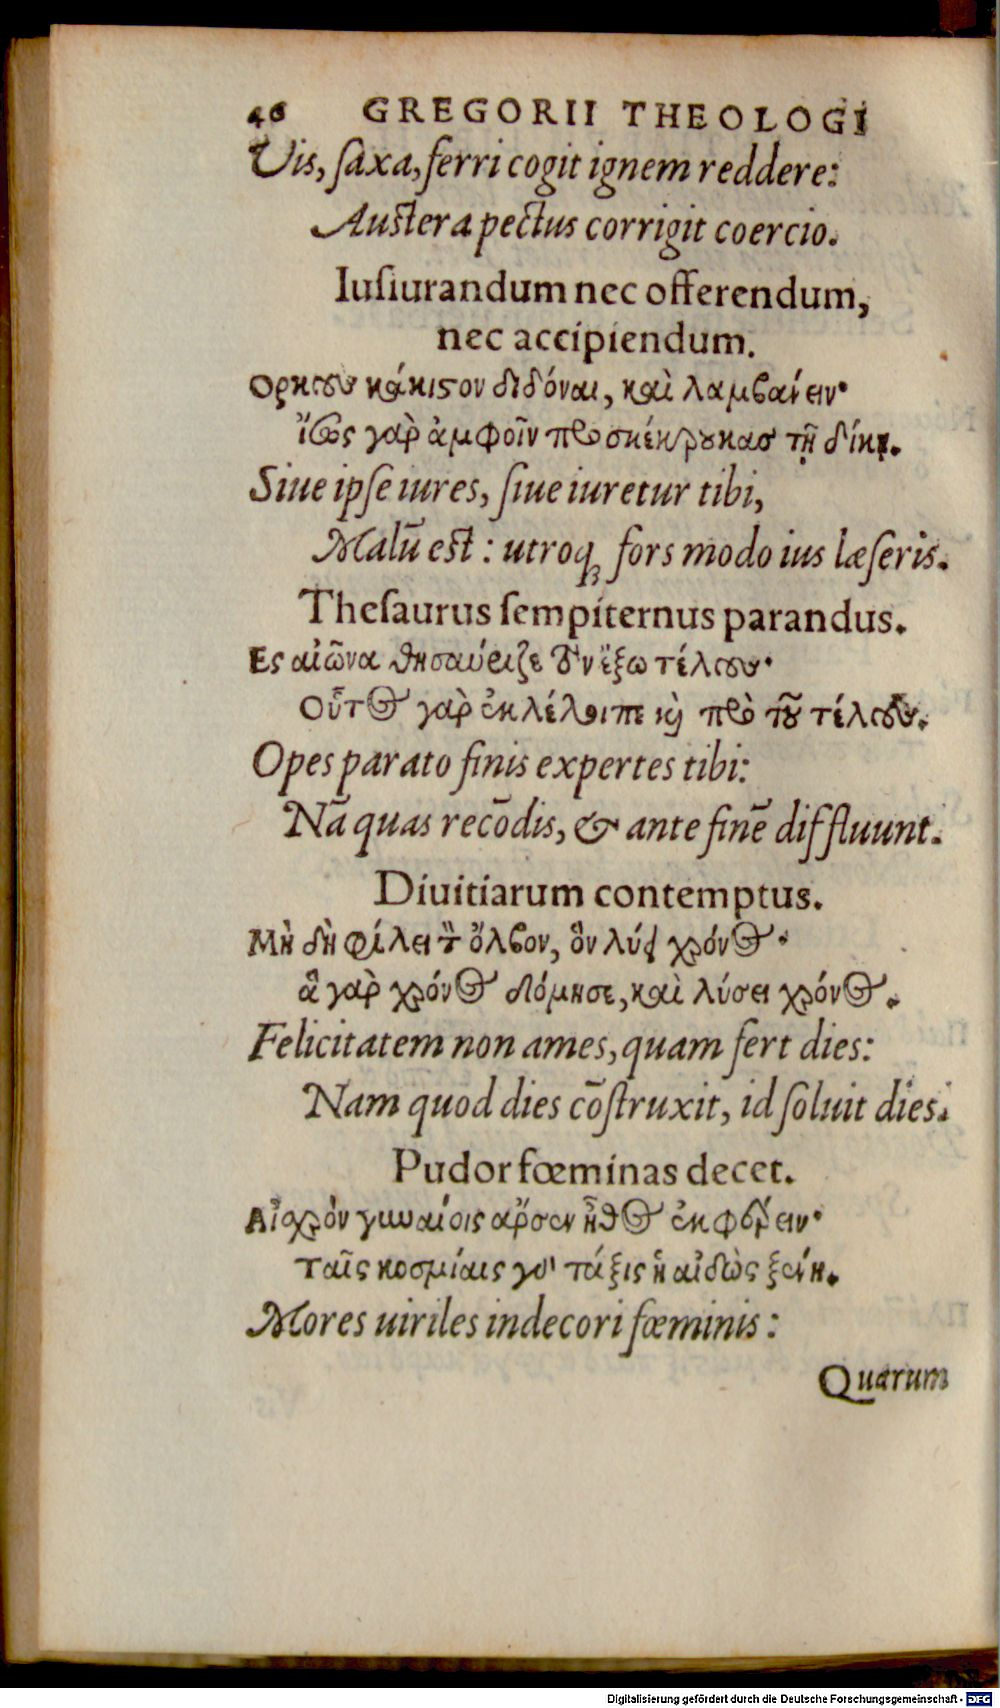 46 GREGORII THEOLOGI
Vis, ſaxa, ferri cogit ignem reddere:
Auſtera pectus corrigit coercio.
Iuſiurandum nec offerendum,
nec accipiendum.
Ορκου κάκιστον διδόναι, καὶ λαμβάνειν·
ἴσως γὰρ ἀμφοῖν προσκέκρουκας τῇ δίκῃ.
Siue ipſe iures, ſiue iuretur tibi,
Malū eſt: utroqꝫ fors modo ius læſeris.
Theſaurus ſempiternus parandus.
Ες αἰῶνα θησαύριζε ὃν ἔξω τέλους·
Οὗτος γὰρ ἐκλέλοιπε καὶ πρὸ τοῦ τέλους.
Opes parato finis expertes tibi:
Nā quas recōdis, & ante finē diffluunt.
Diuitiarum contemptus.
Μὴ δὴ φίλει τὸν ὄλβον, ὃν λύει χρόνος·
ἃ γὰρ χρόνος δόμησε, καὶ λύσει χρόνος.
Felicitatem non ames, quam fert dies:
Nam quod dies cōſtruxit, id ſoluit dies.
Pudor fœminas decet.
Αἰσχρὸν γυναίοις ἄρσεν ἦθος ἐκφέρειν·
ταῖς κοσμίαις γὰρ τάξις ἡ αἰδὼς ξένη.
Mores uiriles indecori fœminis:
Quarum
Digitalisierung gefördert durch die Deutsche Forschungsgemeinschaft - DFG